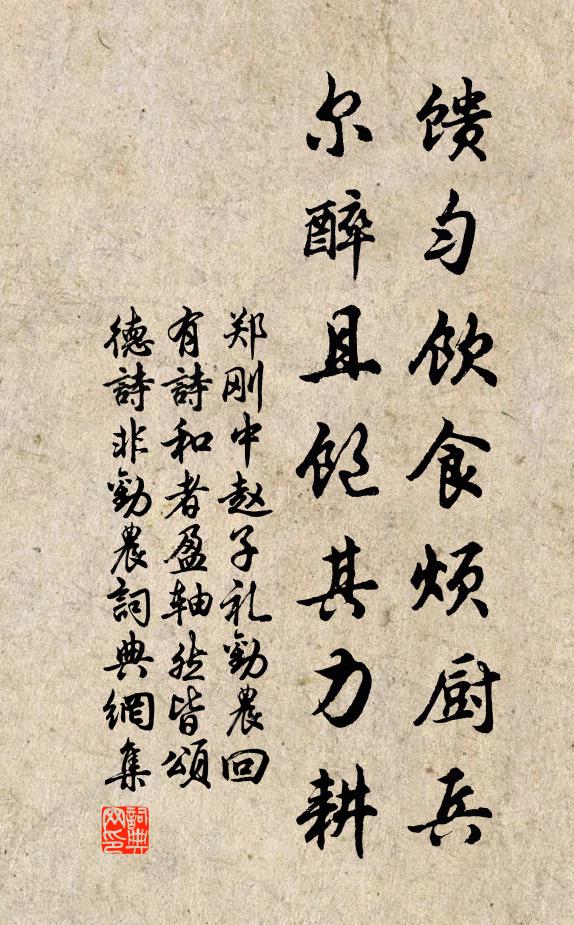 馈匀饮食烦厨兵
尔醉且饱其力耕
郑刚中赵子礼劝農回
有詩和者盈轴然皆頌
德詩非劝農詞典網集
詞典网印